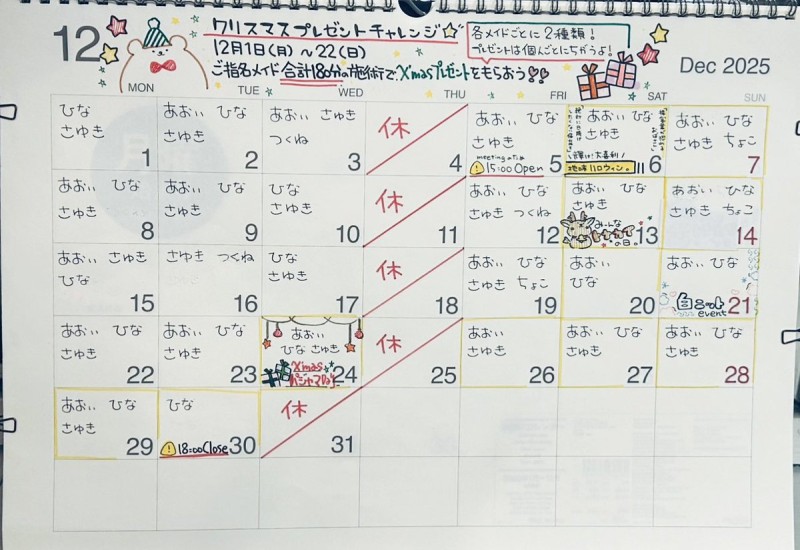 12
クリスマスプレゼントチャレンジ
12月1日(月)～22(日)
ご指名メイド合計180分の施術で、X'masプレゼントをもらおう!!
各メイドごとに2種類!
プレゼントは個人ごとにちがうよ!
Dec 2025
MON TUE WED THU FRI SAT SUN
ひな
さゆき
1
あおい ひな
さゆき
2
あおい さゆき
つくね
3
休
4
あおい ひな
さゆき
meeting の為
15:00 Open
5
あおい ひな
さゆき
地味ハロウィン。
6
あおい ひな
さゆき ちょこ
7
あおい ひな
さゆき
8
あおい ひな
さゆき
9
ひな
さゆき
10
休
11
あおい ひな
さゆき つくね
12
あおい ひな
さゆき
みんな
の日。
13
あおい ひな
さゆき ちょこ
14
あおい さゆき
ひな
15
さゆき つくね
16
ひな
さゆき
17
休
18
あおい ひな
さゆき ちょこ
19
あおい
ひな
20
あおい ひな
さゆき
event
21
あおい ひな
さゆき
22
あおい ひな
さゆき
23
あおい
ひな さゆき
X'mas
パジャマDay
24
休
25
あおい
さゆき
26
あおい ひな
さゆき
27
あおい ひな
さゆき
28
あおい ひな
さゆき
29
ひな
18:00 Close
30
休
31